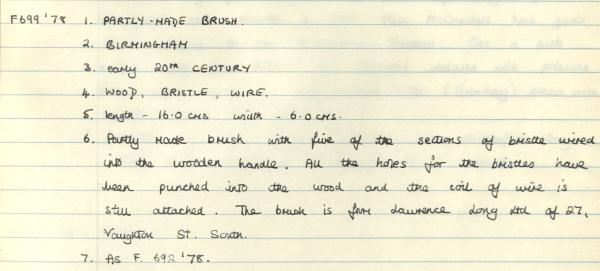 F699'78 1. PARTLY-MADE BRUSH.
2. BIRMINGHAM
3. early 20TH CENTURY
4. WOOD, BRISTLE, WIRE.
5. length - 16.0 CMS width - 6.0 CMS.
6. Partly made brush with five of the sections of bristle wired
into the wooden handle. All the holes for the bristles have
been punched into the wood and the coil of wire is
still attached. The brush is from Lawrence Long Ltd of 27,
Vaughton St. South.
7. AS F. 692'78.